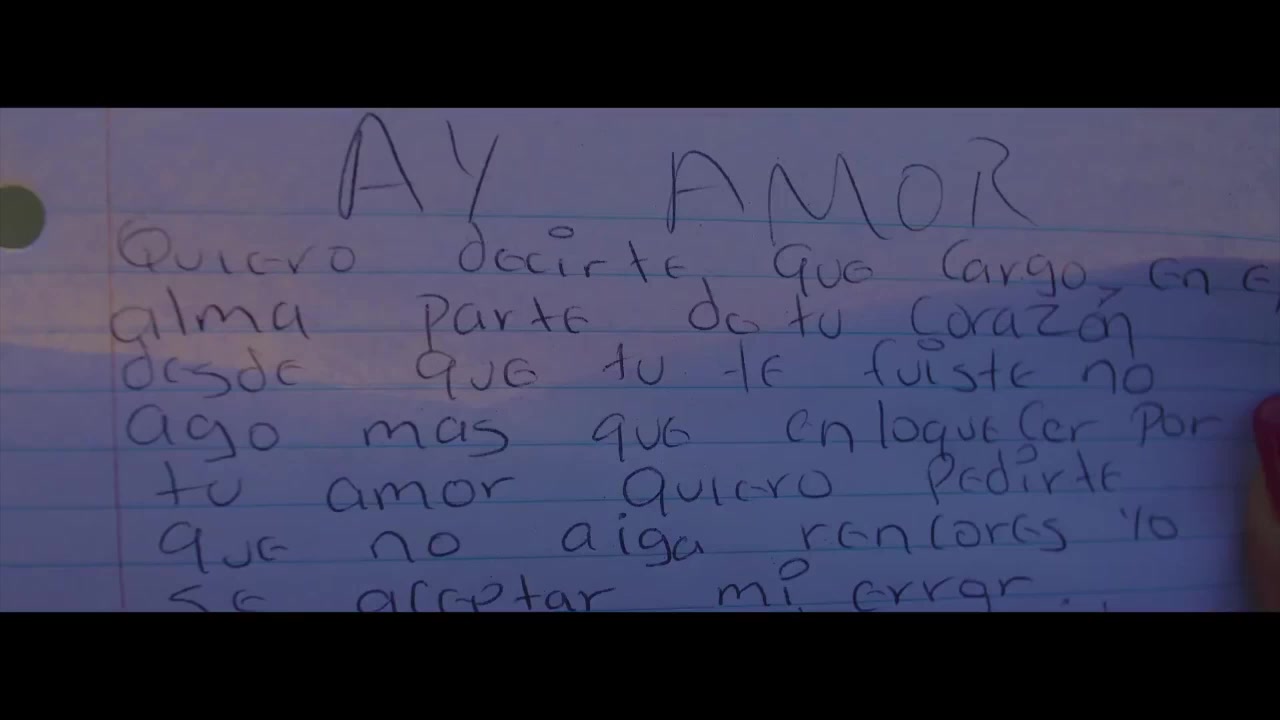 AY AMOR
Quiero decirte, que cargo, en e
alma parte de tu corazón
desde que tu te fuiste no
ago mas que enloquecer por
tu amor quiero pedirte
que no aiga rencores yo
se aceptar mi error..